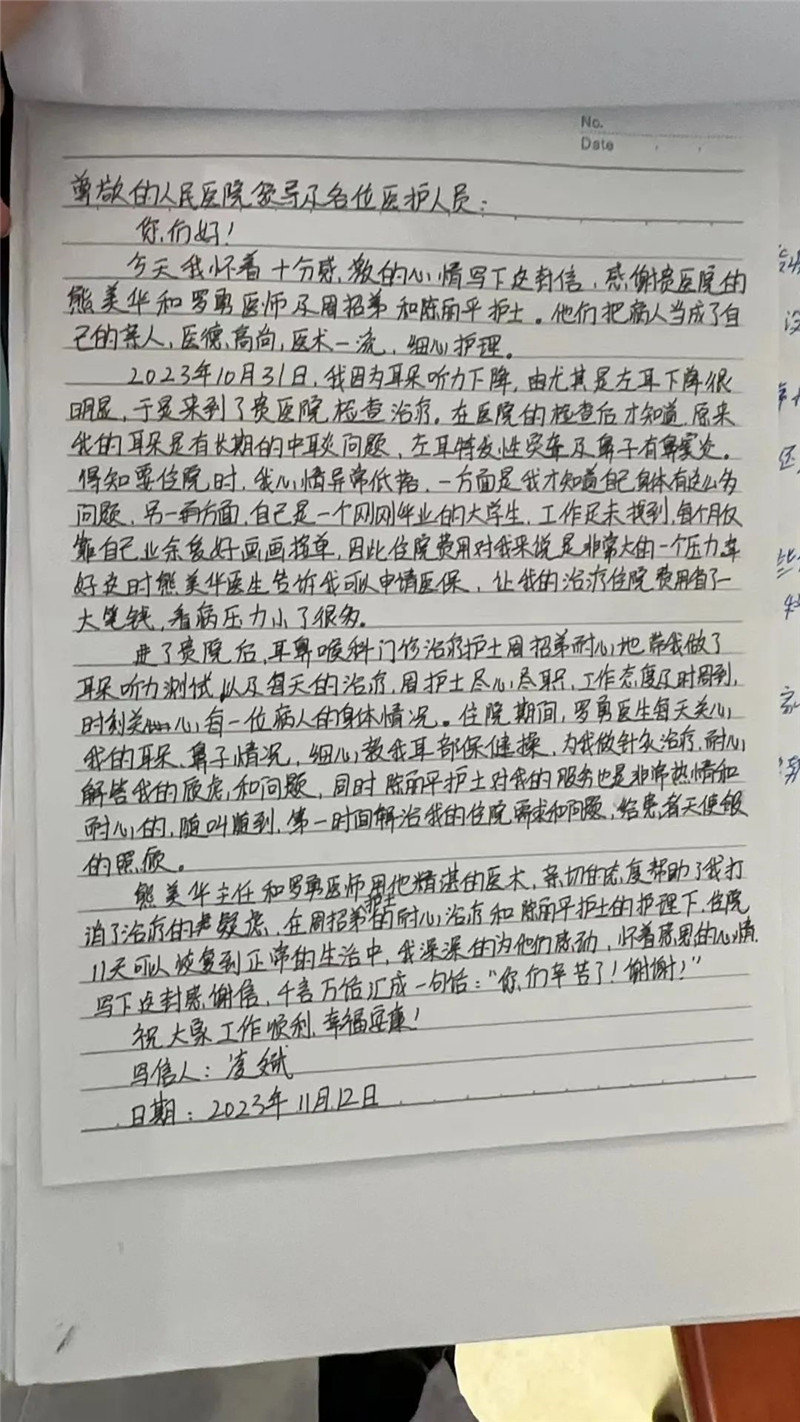 No.
Date
尊敬的人民医院领导及各位医护人员：
你们好！
今天我怀着十分感激的心情写下这封信，感谢贵医院的
熊美华和罗勇医师及周招弟和陈丽平护士。他们把病人当成了自
己的亲人，医德高尚，医术一流，细心护理。
2023年10月31日，我因为耳朵听力下降，由尤其是左耳下降很
明显，于是来到了贵医院检查治疗。在医院的检查后才知道，原来
我的耳朵是有长期的中耳炎问题，左耳特发性突聋及鼻子有鼻窦炎。
得知要住院时，我心情异常低落，一方面是我才知道自己身体有这么多
问题，另一方面，自己是一个刚刚毕业的大学生，工作还未找到，每个月仅
靠自己业余爱好画画接单，因此住院费用对我来说是非常大的一个压力，幸
好这时熊美华医生告诉我可以申请医保，让我的治疗住院费用省了一
大笔钱，看病压力小了很多。
进了贵院后，耳鼻喉科门诊治疗护士周招弟耐心地带我做了
耳朵听力测试以及每天的治疗，周护士尽心尽职，工作态度及时周到，
时刻关心每一位病人的身体情况。住院期间，罗勇医生每天关心
我的耳朵、鼻子情况，细心教我耳部保健操，为我做针灸治疗，耐心
解答我的顾虑和问题，同时陈丽平护士对我的服务也是非常热情和
耐心的，随叫随到，第一时间解决我的住院需求和问题，给患者天使般
的照顾。
熊美华主任和罗勇医师用他精湛的医术，亲切的态度帮助了我打
消了治疗的疑虑，在周招弟护士的耐心治疗和陈丽平护士的护理下，住院
11天可以恢复到正常的生活中，我深深的为他们感动，怀着感恩的心情，
写下这封感谢信，千言万语汇成一句话：“你们辛苦了！谢谢！”
祝大家工作顺利，幸福安康！
写信人：凌斌
日期：2023年11月12日